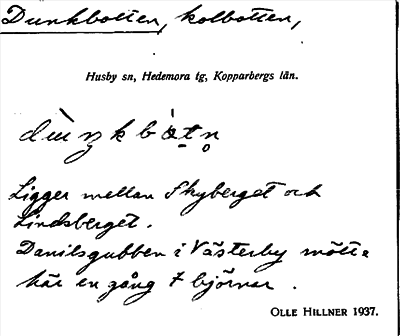 Dunkbotten, kolbotten,
Husby sn, Hedemora tg, Kopparbergs län.
dùŋkbòtn̥
Ligger mellan Skyberget och
Lindsberget.
Danilsgubben i Västerby mötte
här en gång 7 björnar.
OLLE HILLNER 1937.